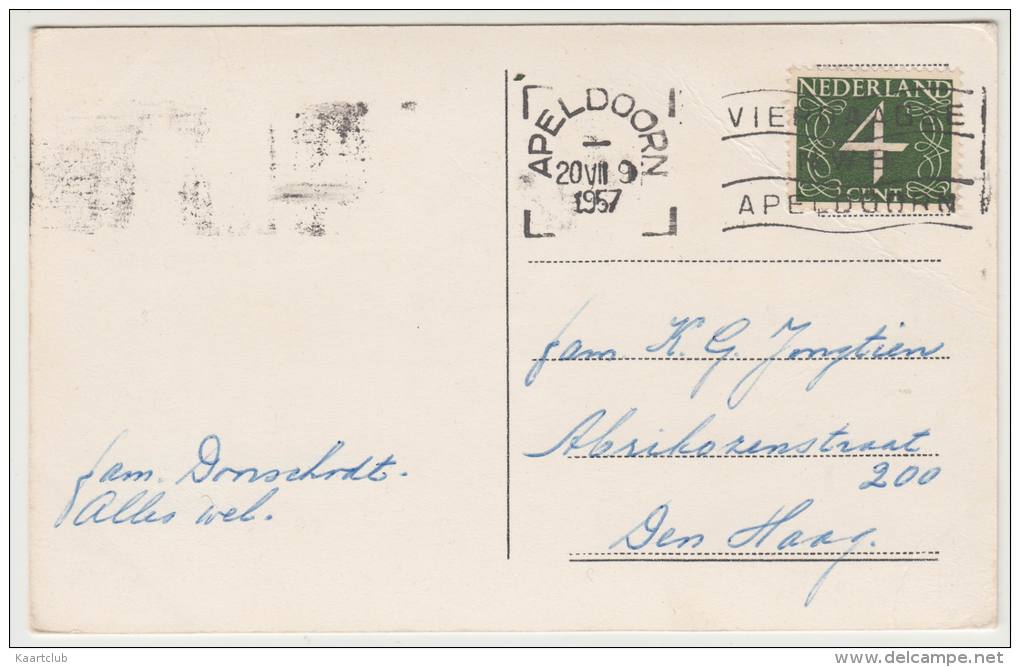 NEDERLAND
4
CENT
APELDOORN
20 VII 9
1957
APELDOORN
fam. K. G. Jongtien
Abrikozenstraat
200
Den Haag.
fam. Donschodt.
Alles wel.
Kaartclub
delcampe.net